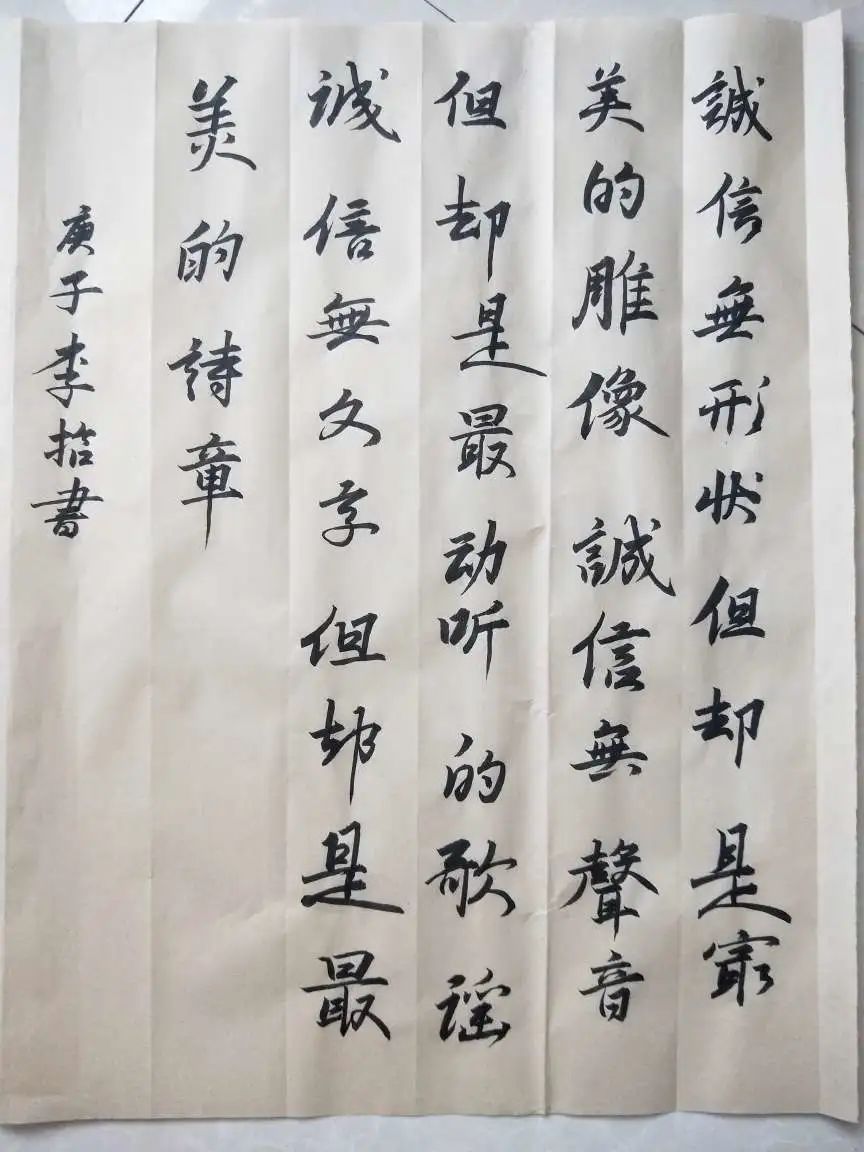 誠信無形状但却是寂
美的雕像誠信無聲音
但却是最动听的歌谣
诚信無文字但却是最
美的詩章
庚子李拮書